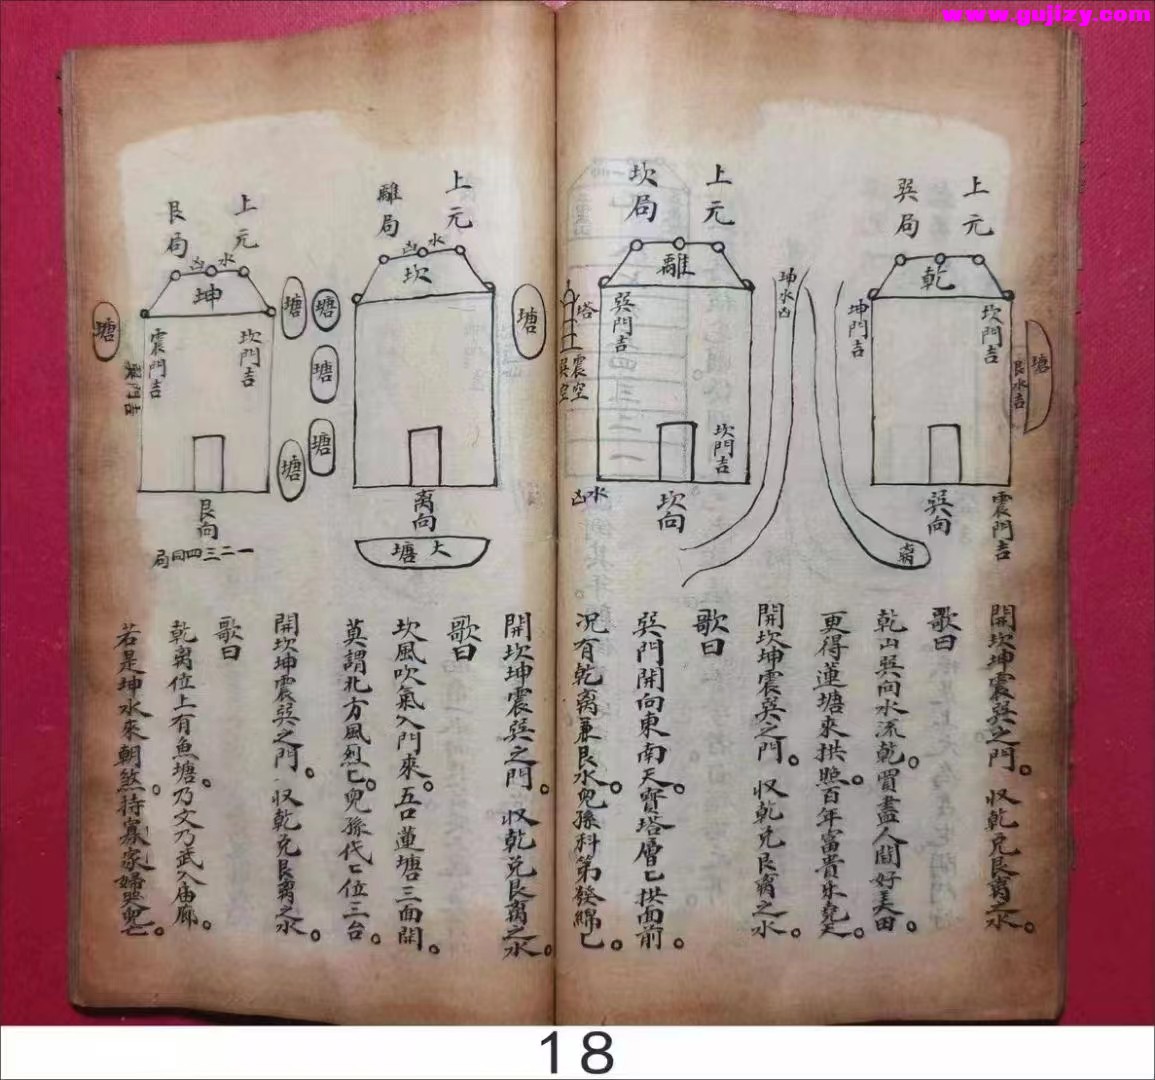 www.gujizy.com
上元
巽局
乾
坤門吉
坎門吉
塘
艮水吉
巽向
震門吉
開坎坤震巽之門。収乾兌艮离之水。
歌曰
乾山巽向水流乾。買盡人間好美田。
更得蓮塘來拱照。百年富貴樂堯天。
上元
坎局
離
坤水凶
巽門吉
塔
震空
巽空
坎門吉
坎向
水凶
開坎坤震巽之門。収乾兌艮离之水。
歌曰
巽門開向東南天。寳塔層〻拱面前。
况有乾离兼艮水。兒孫科第發綿〻。
上元
離局
水凶
坎
塘
塘
塘
塘
离向
大塘
開坎坤震巽之門。収乾兌艮离之水。
歌曰
坎風吹氣入門來。五口蓮塘三面開。
莫謂北方風烈〻。兒孫代〻位三台。
上元
艮局
水凶
坤
塘
塘
塘
坎門吉
震門吉
艮向
一二三四同局
開坎坤震巽之門。収乾兌艮离之水。
歌曰
乾离位上有魚塘。乃文乃武入庙廊。
若是坤水來朝煞。持寡家婦哭兒亡。
18